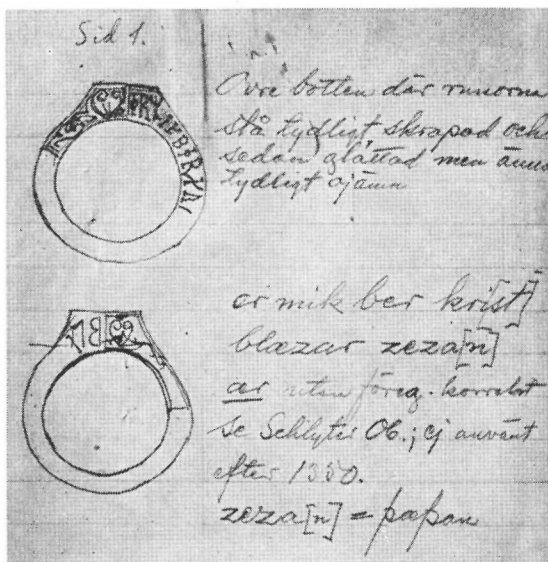 Sid 1.
Övre botten där runorna
stå tydligt skrapad och
sedan glättad men ännu
tydligt ojämn
er mik ber krist]
blæzar zeza[n]
ær utan föreg. korrekt
se Schlyter Ob.; ej använt
efter 1350.
zeza[n] = þæþan